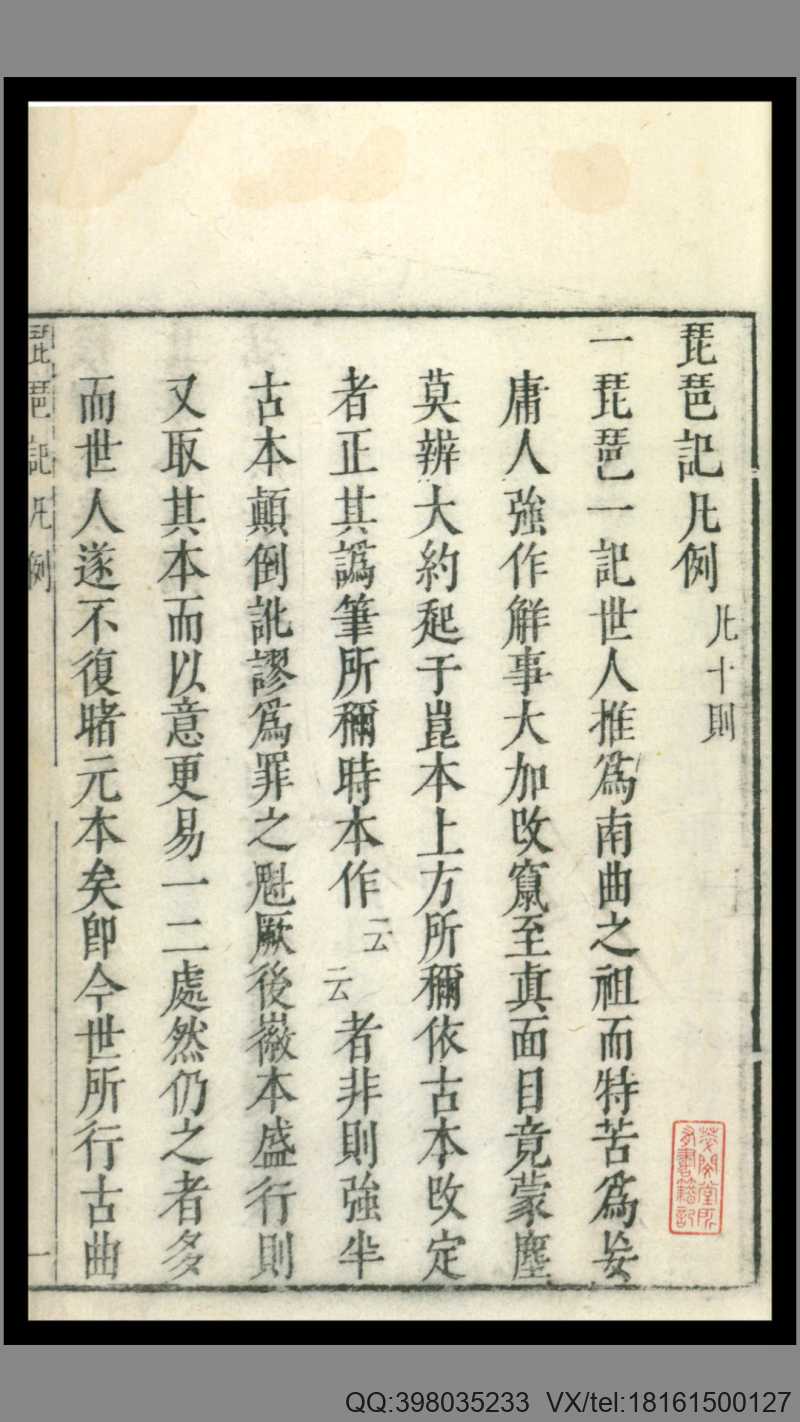 琵琶記凡例 凡十則
一琵琶一記世人推爲南曲之祖而特苦爲妄
庸人強作觧事大加改竄至真面目竟蒙塵
莫辨大約起于崑本上方所稱依古本改定
者正其譌筆所稱時本作云云者非則強半
古本顛倒訛謬爲罪之魁厥後徽本盛行則
又取其本而以意更易一二處然仍之者多
而世人遂不復睹元本矣卽今世所行古曲
琵琶記凡例 一
QQ:398035233 VX/tel:18161500127